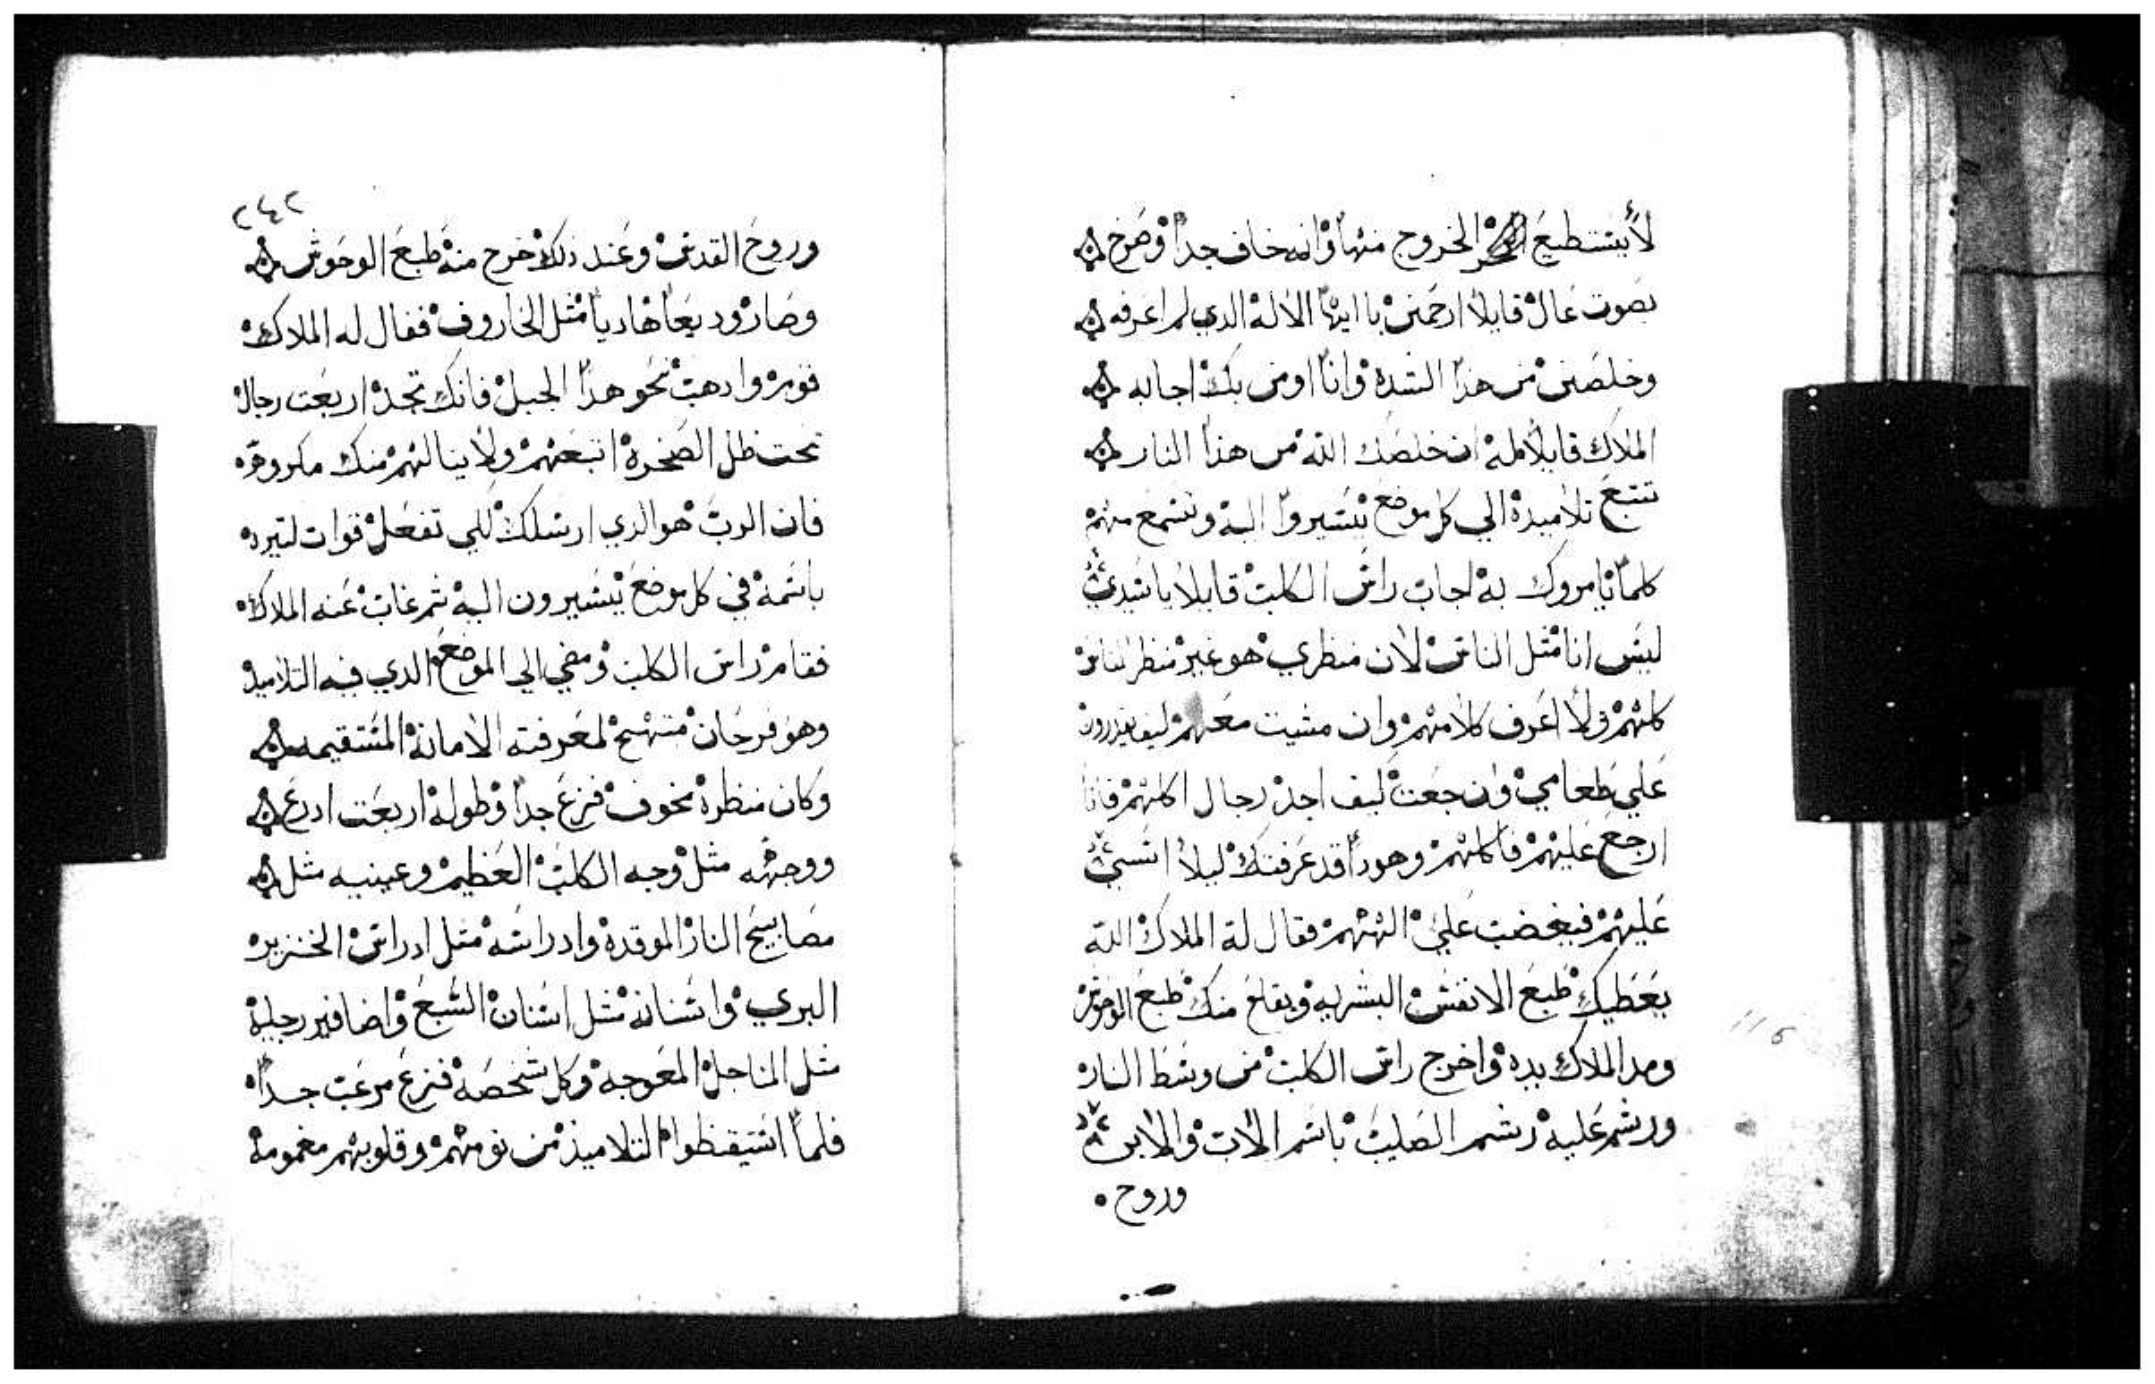 لا يستطيع الخروج منها وانه خاف جدا وصرخ
بصوت عال قايلا ارحمني يا ايها الاله الدي لم اعرفه
وخلصني من هذا الشدة وانا اومن بك اجابه
الملاك قايلا له ان خلصك الله من هذا النار
تتبع تلاميذه الي كل موضع يسيروا اليه وتسمع منهم
كلما يامروك به اجاب راس الكلب قايلا يا سيدي
ليس انا مثل الناس لان منظري هو غير منظر الناس
كلهم ولا اعرف كلامهم وان مشيت معهم كيف يقدرون
علي طعامي وان جعت كيف اجد رجال اكلهم فانا
ارجع عليهم فاكلهم وهودا قد عرفتك ليلا اسي
عليهم فيغضب علي الههم فقال له الملاك الله
يعطيك طبع الانفس البشريه ويقلع منك طبع الوحوش
ومد الملاك يده واخرج راس الكلب من وسط النار
ورشم عليه رشم الصليب باسم الاب والابن
وروح
٢٤٢
وروح القدس وعند ذلك خرج منه طبع الوحوش
وصار وديعا هاديا مثل الخاروف فقال له الملاك
قوم وادهب نحو هذا الجبل فانك تجد اربعت رجال
تحت ظل الصخرة اتبعهم ولا ينالهم منك مكروه
فان الرب هو الدي ارسلك لكي تفعل قوات كتيره
باسمه في كل موضع يسيرون اليه ثم غاب عنه الملاك
فقام راس الكلب ومضي الي الموضع الدي فيه التلاميذ
وهو فرحان مبتهج لمعرفته الامانة المستقيمه
وكان منظره مخوف فزع جدا وطوله اربعت ادرع
ووجهه مثل وجه الكلب العظيم وعينيه مثل
مصابيح النار الموقدة وادراسه مثل ادراس الخنزير
البري واسنانه مثل اسنان السبع واضافير رجليه
مثل المناجل المعوجه وكل شخصه فزع مرعب جدا
فلما استيقظوا التلاميذ من نومهم وقلوبهم مغمومة